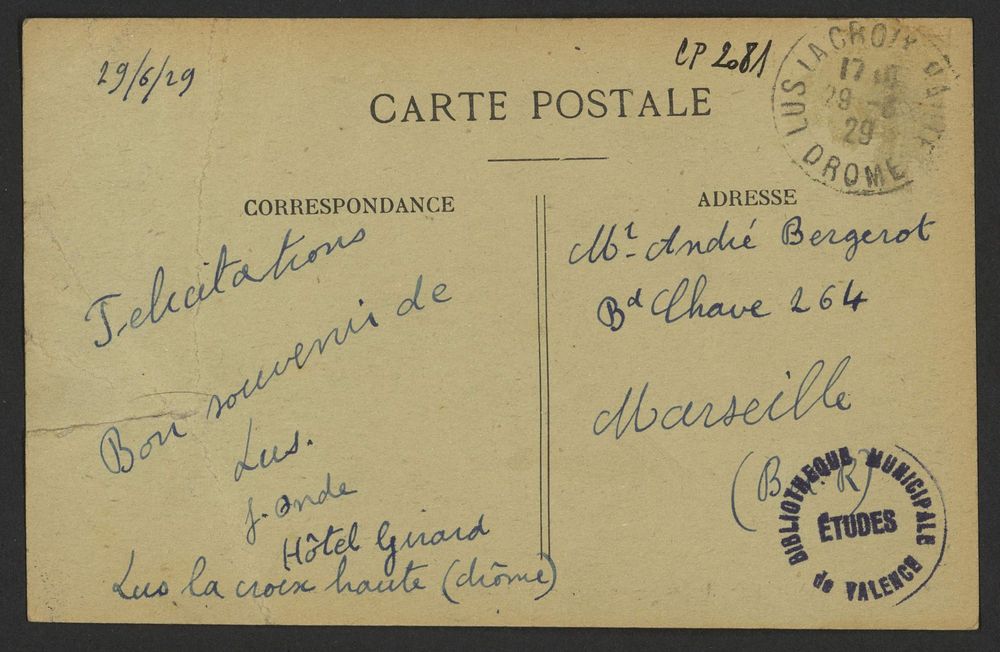 29/6/29
CP 2081
LUS LA CROIX HAUTE
17
29 - 6
29
DROME
CARTE POSTALE
CORRESPONDANCE
Felicitations
Bon souvenir de
Lus.
J. Onde
Hôtel Girard
Lus la croix haute (drôme)
ADRESSE
Mr André Bergerot
Bd Chave 264
Marseille
(B. R)
BIBLIOTHEQUE MUNICIPALE
ÉTUDES
de VALENCE